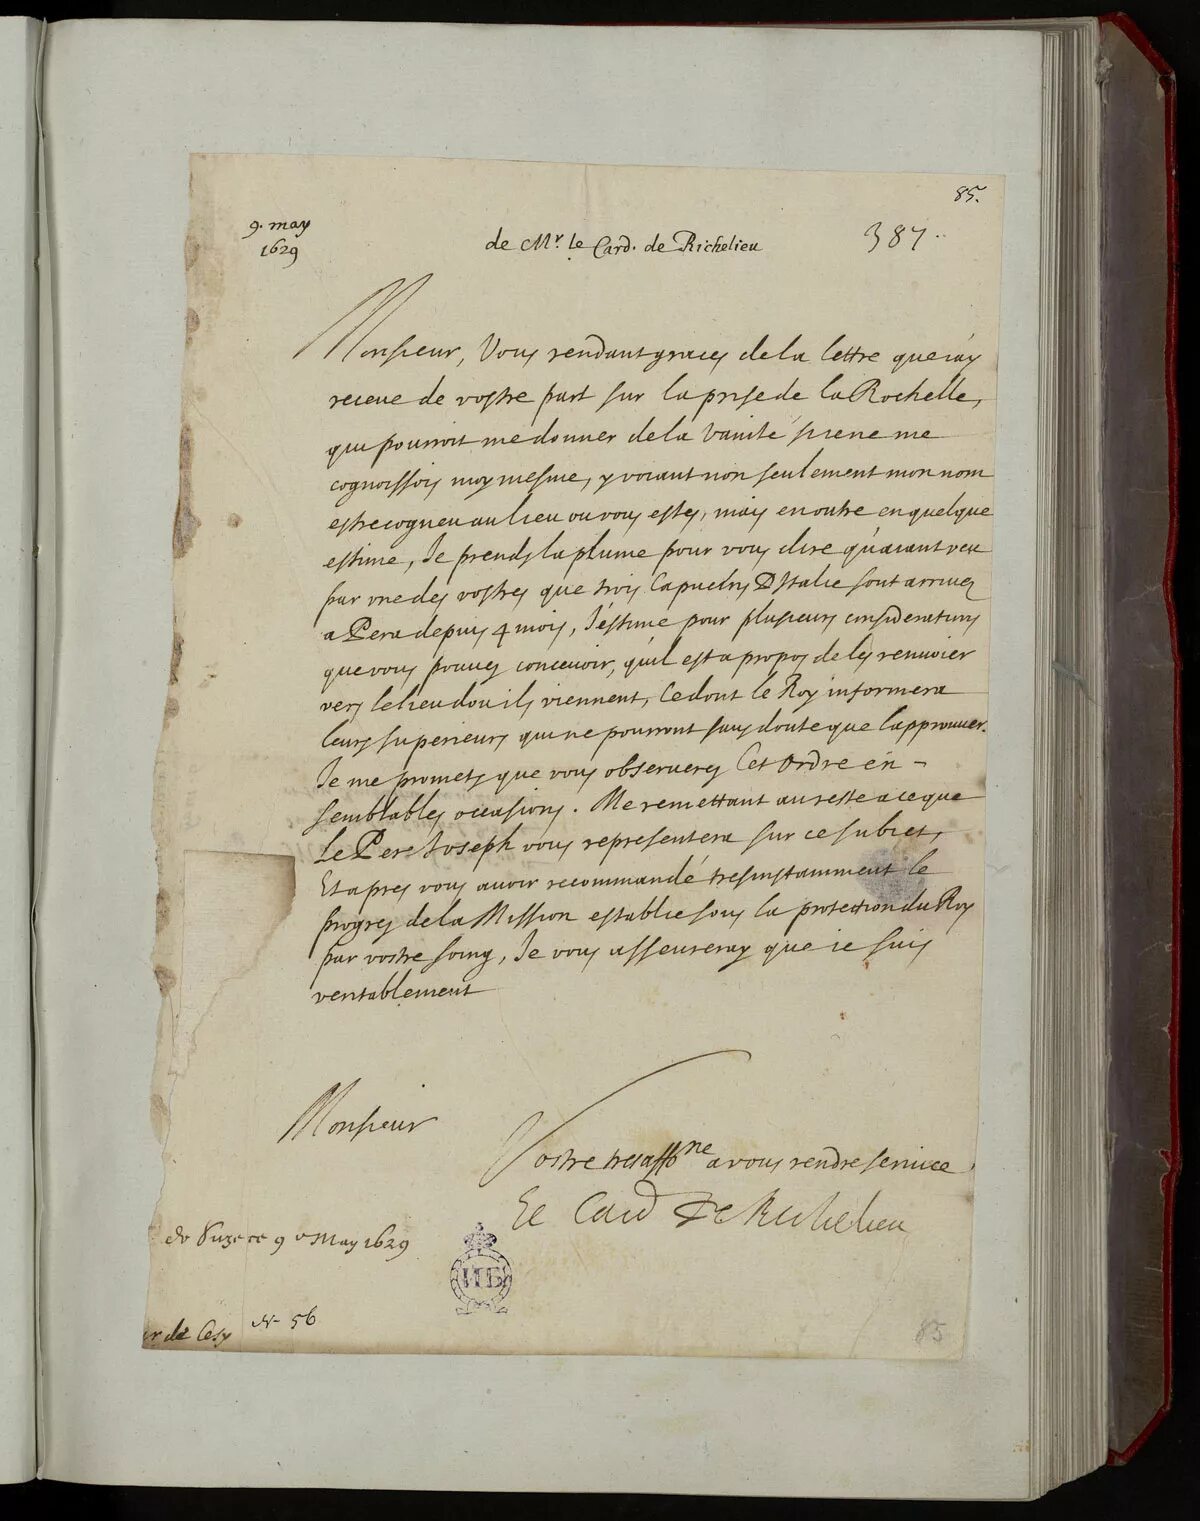 85.
9. may
1629
de Mr. le Card. de Richelieu
387.
Monsieur, Vous rendant graces de la lettre que i'ay
receue de vostre part sur la prise de la Rochelle,
qui pourroit me donner de la vanité si ie ne me
cognoissois moy mesme, y voiant non seulement mon nom
estre cogneu au lieu ou vous estes, mais en outre en quelque
estime, Je prends la plume pour vous dire qu'aiant veu
par une des vostres que trois Capucins D'Italie sont arriuez
a Pera depuis 4 mois, J'estime pour plusieurs considerations
que vous pouues conceuoir, qu'il est a propos de les renuoier
vers le lieu dou ils viennent, Ce dont le Roy informera
leurs superieurs qui ne pourront sans doute que l'approuuer.
Je me promets que vous obserueres Cet Ordre en
semblables occasions. Me remettant au reste a ce que
Le Pere Joseph vous representera sur ce subiet,
Et apres vous auoir recommandé tresinstamment le
progres de la Mission establie sous la protection du Roy
par vostre soing, Je vous asseureray que ie suis
veritablement
Monsieur
Vostre tres affne a vous rendre seruice
Le Card De Richelieu
9 May 1629
ИБ
de Cesy
N. 56
85